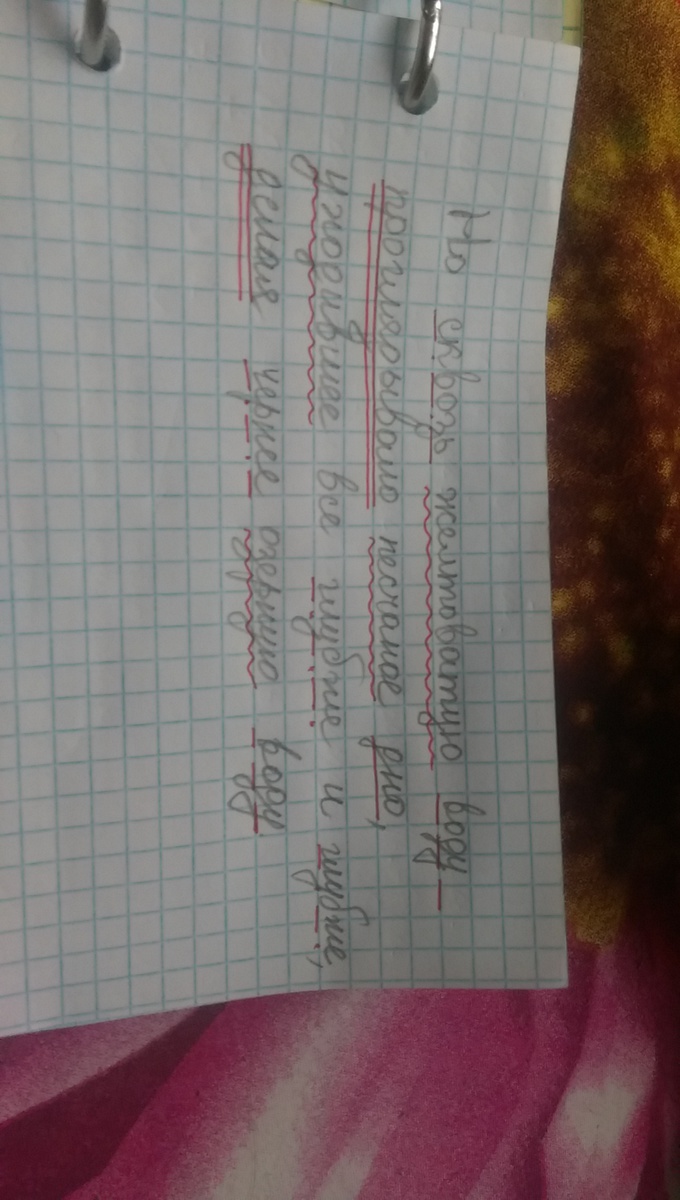 Но сквозь желтоватую воду
проглядывало песчаное дно,
уходившее все глубже и глубже,
делая чернее озерную воду.